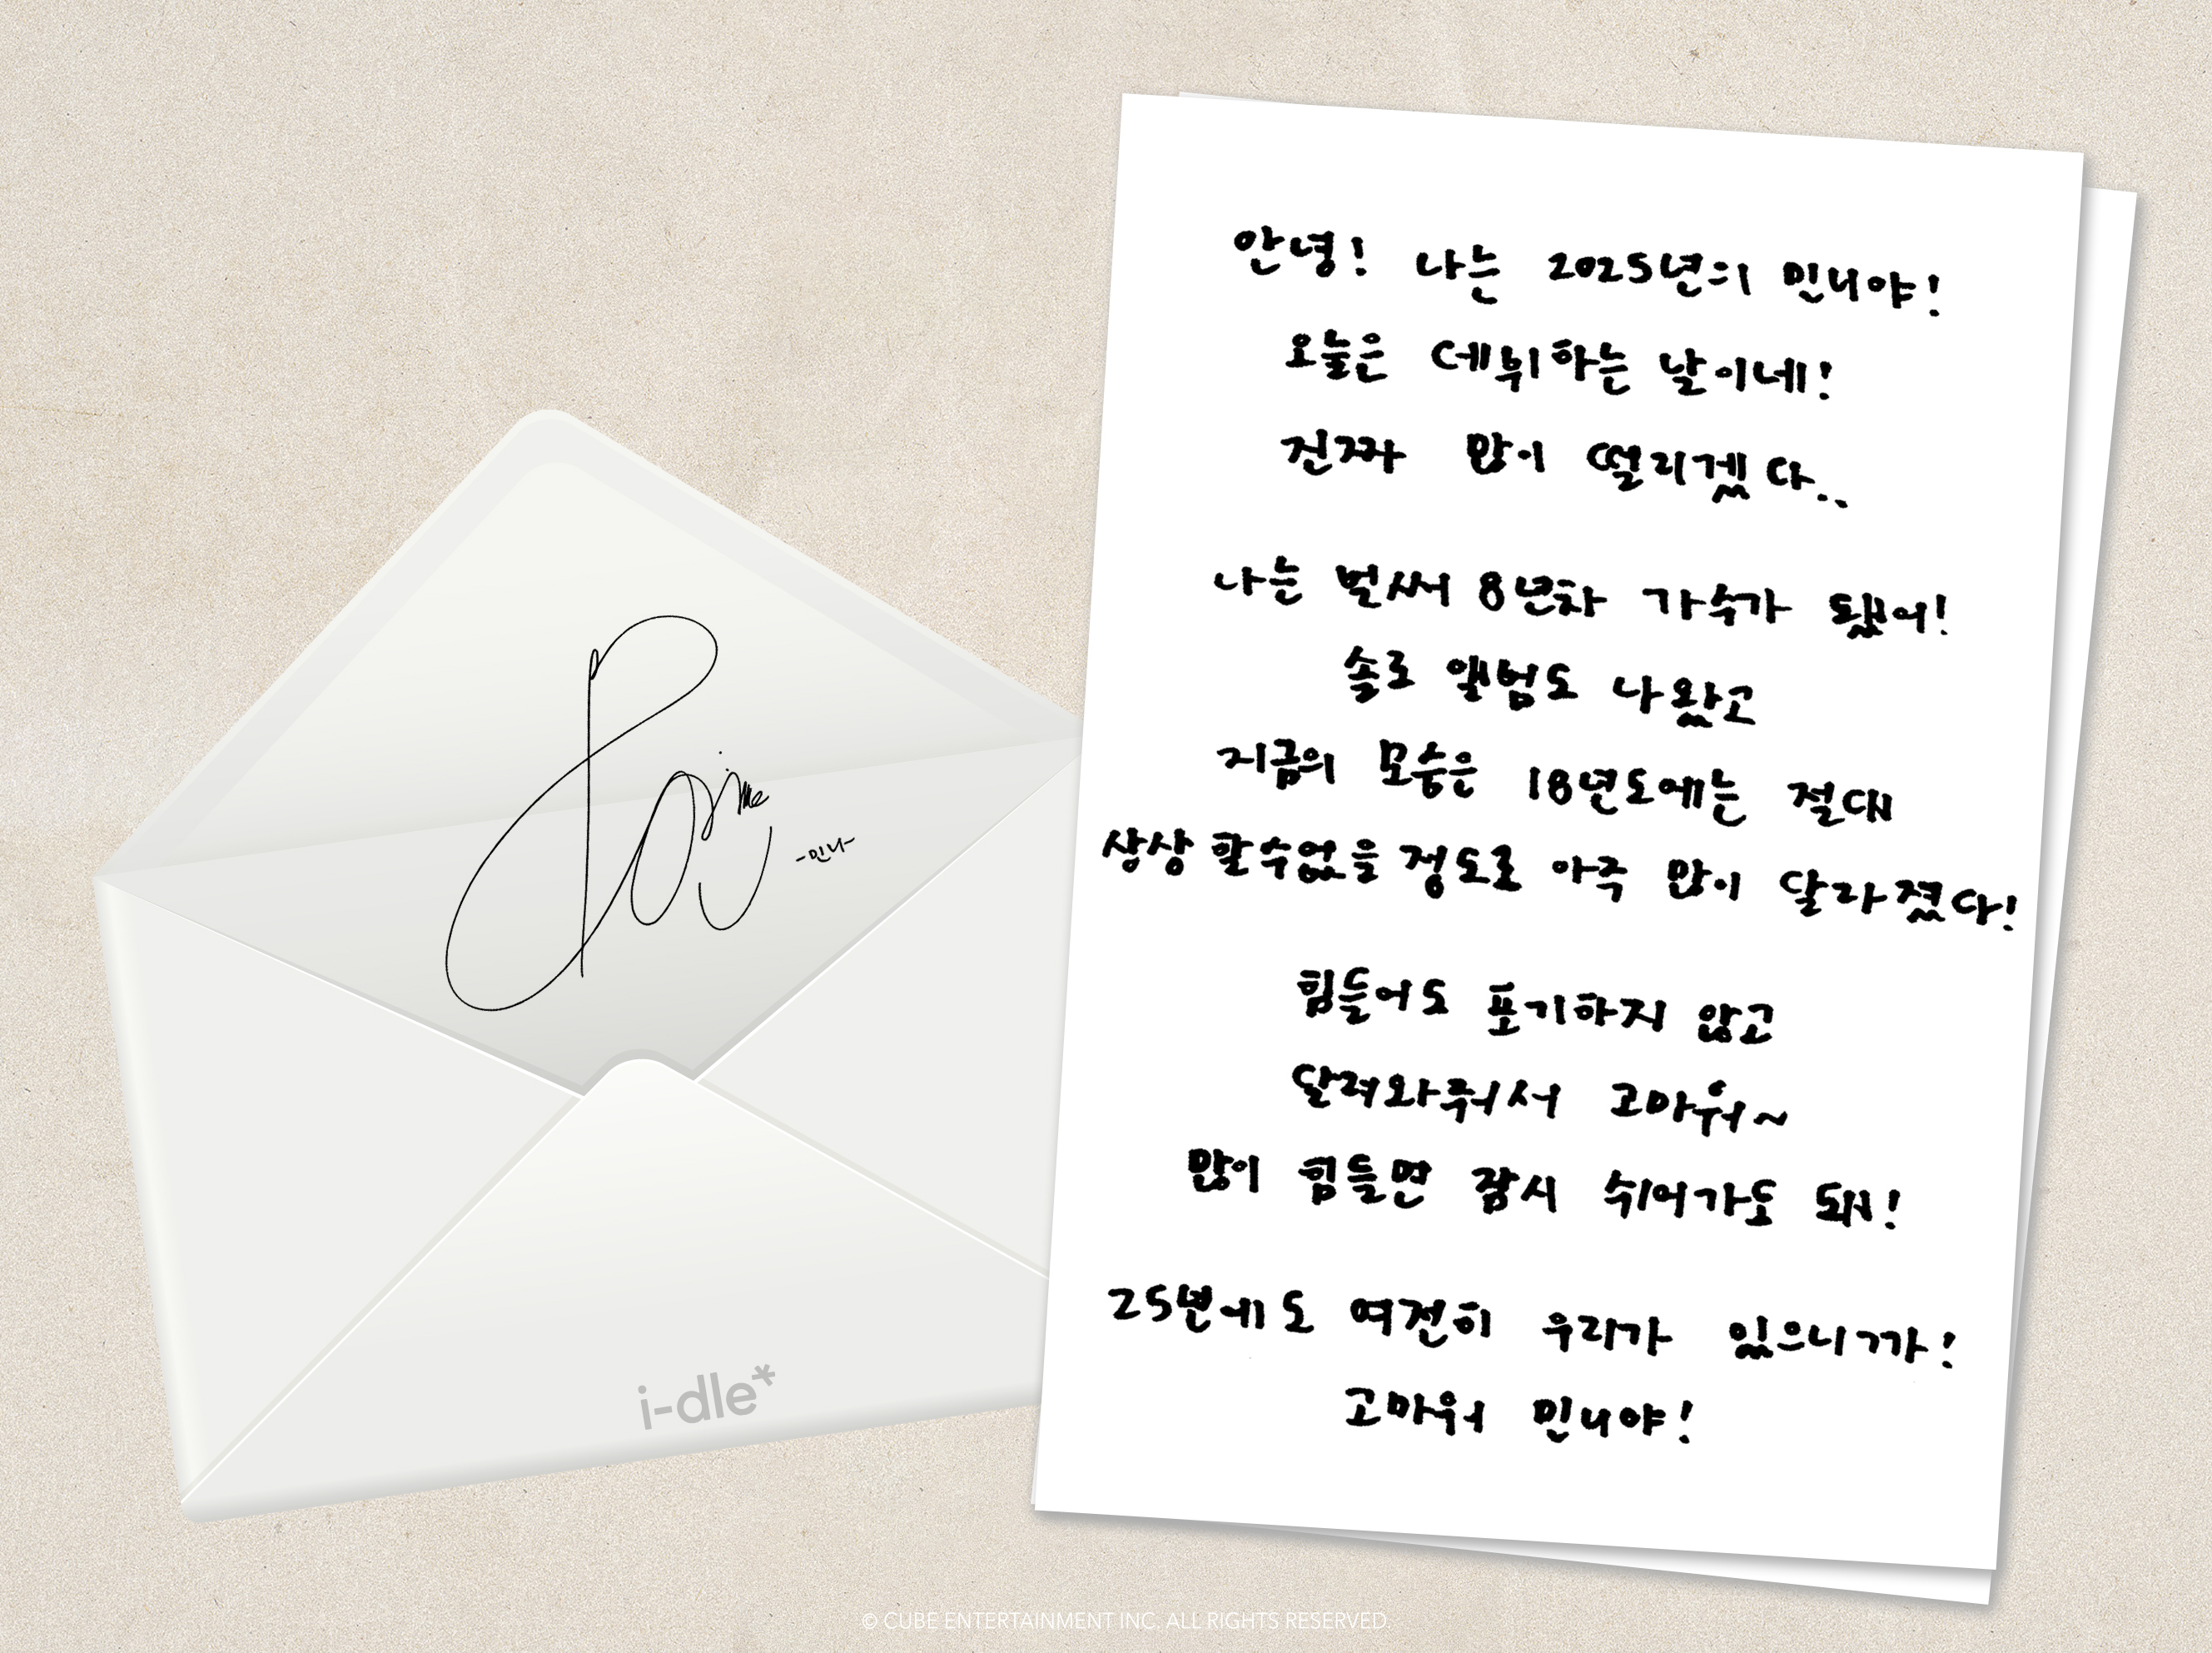 -민니-
i-dle*
안녕! 나는 2025년의 민니야!
오늘은 데뷔하는 날이네!
진짜 많이 떨리겠다..
나는 벌써 8년차 가수가 됐어!
솔로 앨범도 나왔고
지금의 모습은 18년도에는 절대
상상 할수없을 정도로 아주 많이 달라졌다!
힘들어도 포기하지 않고
달려와줘서 고마워~
많이 힘들면 잠시 쉬어가도 돼!
25년에도 여전히 우리가 있으니까!
고마워 민니야!
© CUBE ENTERTAINMENT INC. ALL RIGHTS RESERVED.